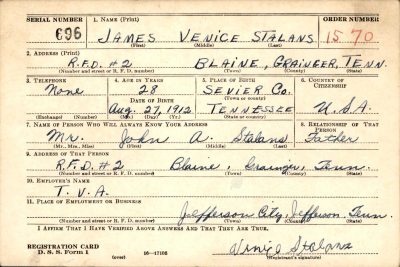 SERIAL NUMBER 1. NAME (Print) ORDER NUMBER
696 JAMES VENICE STALANS 1570
(First) (Middle) (Last)
2. ADDRESS (Print)
R.F.D. #2 BLAINE, GRAINGER, TENN.
(Number and street or R. F. D. number) (Town) (County) (State)
3. TELEPHONE 4. AGE IN YEARS 5. PLACE OF BIRTH 6. COUNTRY OF CITIZENSHIP
None 28 SEVIER Co.
DATE OF BIRTH (Town or county)
Aug. 27, 1912 TENNESSEE U.S.A.
(Exchange) (Number) (Mo.) (Day) (Yr.) (State or country)
7. NAME OF PERSON WHO WILL ALWAYS KNOW YOUR ADDRESS 8. RELATIONSHIP OF THAT PERSON
Mr. John A. Stalans Father
(Mr., Mrs., Miss) (First) (Middle) (Last)
9. ADDRESS OF THAT PERSON
R.F.D. #2 Blaine, Grainger, Tenn.
(Number and street or R. F. D. number) (Town) (County) (State)
10. EMPLOYER'S NAME
T.V.A.
11. PLACE OF EMPLOYMENT OR BUSINESS
Jefferson City, Jefferson, Tenn.
(Number and street or R. F. D. number) (Town) (County) (State)
I AFFIRM THAT I HAVE VERIFIED ABOVE ANSWERS AND THAT THEY ARE TRUE.
REGISTRATION CARD
D. S. S. Form 1 (over) 16—17105 Venice Stalans
(Registrant's signature)